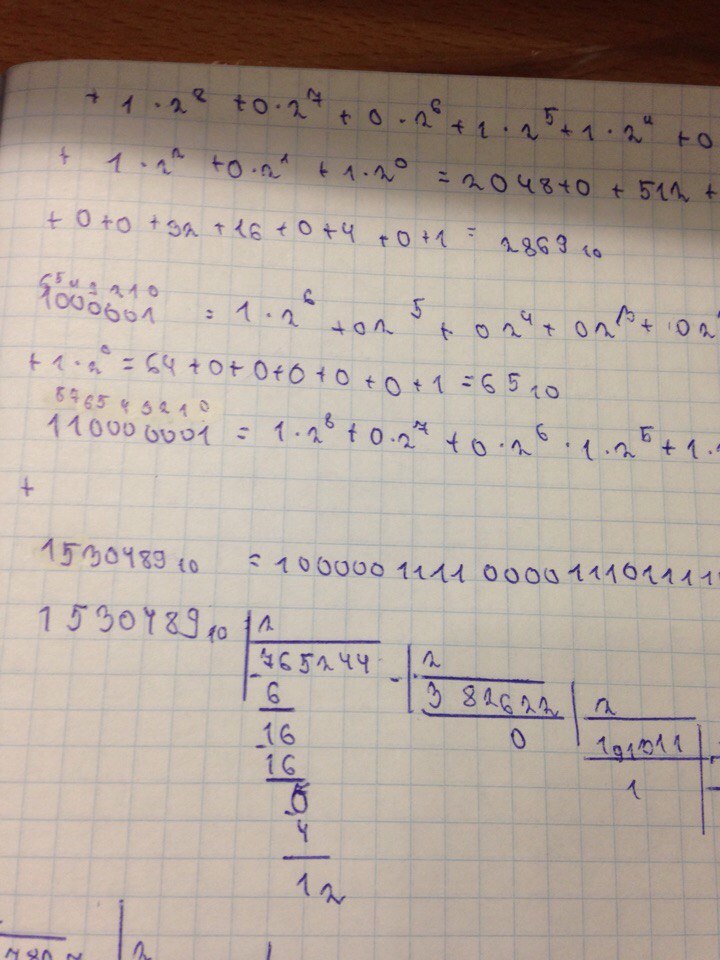 + 1 · 2⁸ + 0 · 2⁷ + 0 · 2⁶ + 1 · 2⁵ + 1 · 2⁴ + 0
+ 1 · 2² + 0 · 2¹ + 1 · 2⁰ = 2048 + 0 + 512 +
+ 0 + 0 + 32 + 16 + 0 + 4 + 0 + 1 = 2869₁₀
6 5 4 3 2 1 0
1000001 = 1 · 2⁶ + 02⁵ + 02⁴ + 02³ + 02
+ 1 · 2⁰ = 64 + 0 + 0 + 0 + 0 + 0 + 1 = 65₁₀
8 7 6 5 4 3 2 1 0
110000001 = 1 · 2⁸ + 0 · 2⁷ + 0 · 2⁶ · 1 · 2⁵ + 1 ·
+
1530489₁₀ = 1000001111000011101111
1530489₁₀ 2
765244 2
6 382622 2
16 0 191311
16 1
5
4
12
2